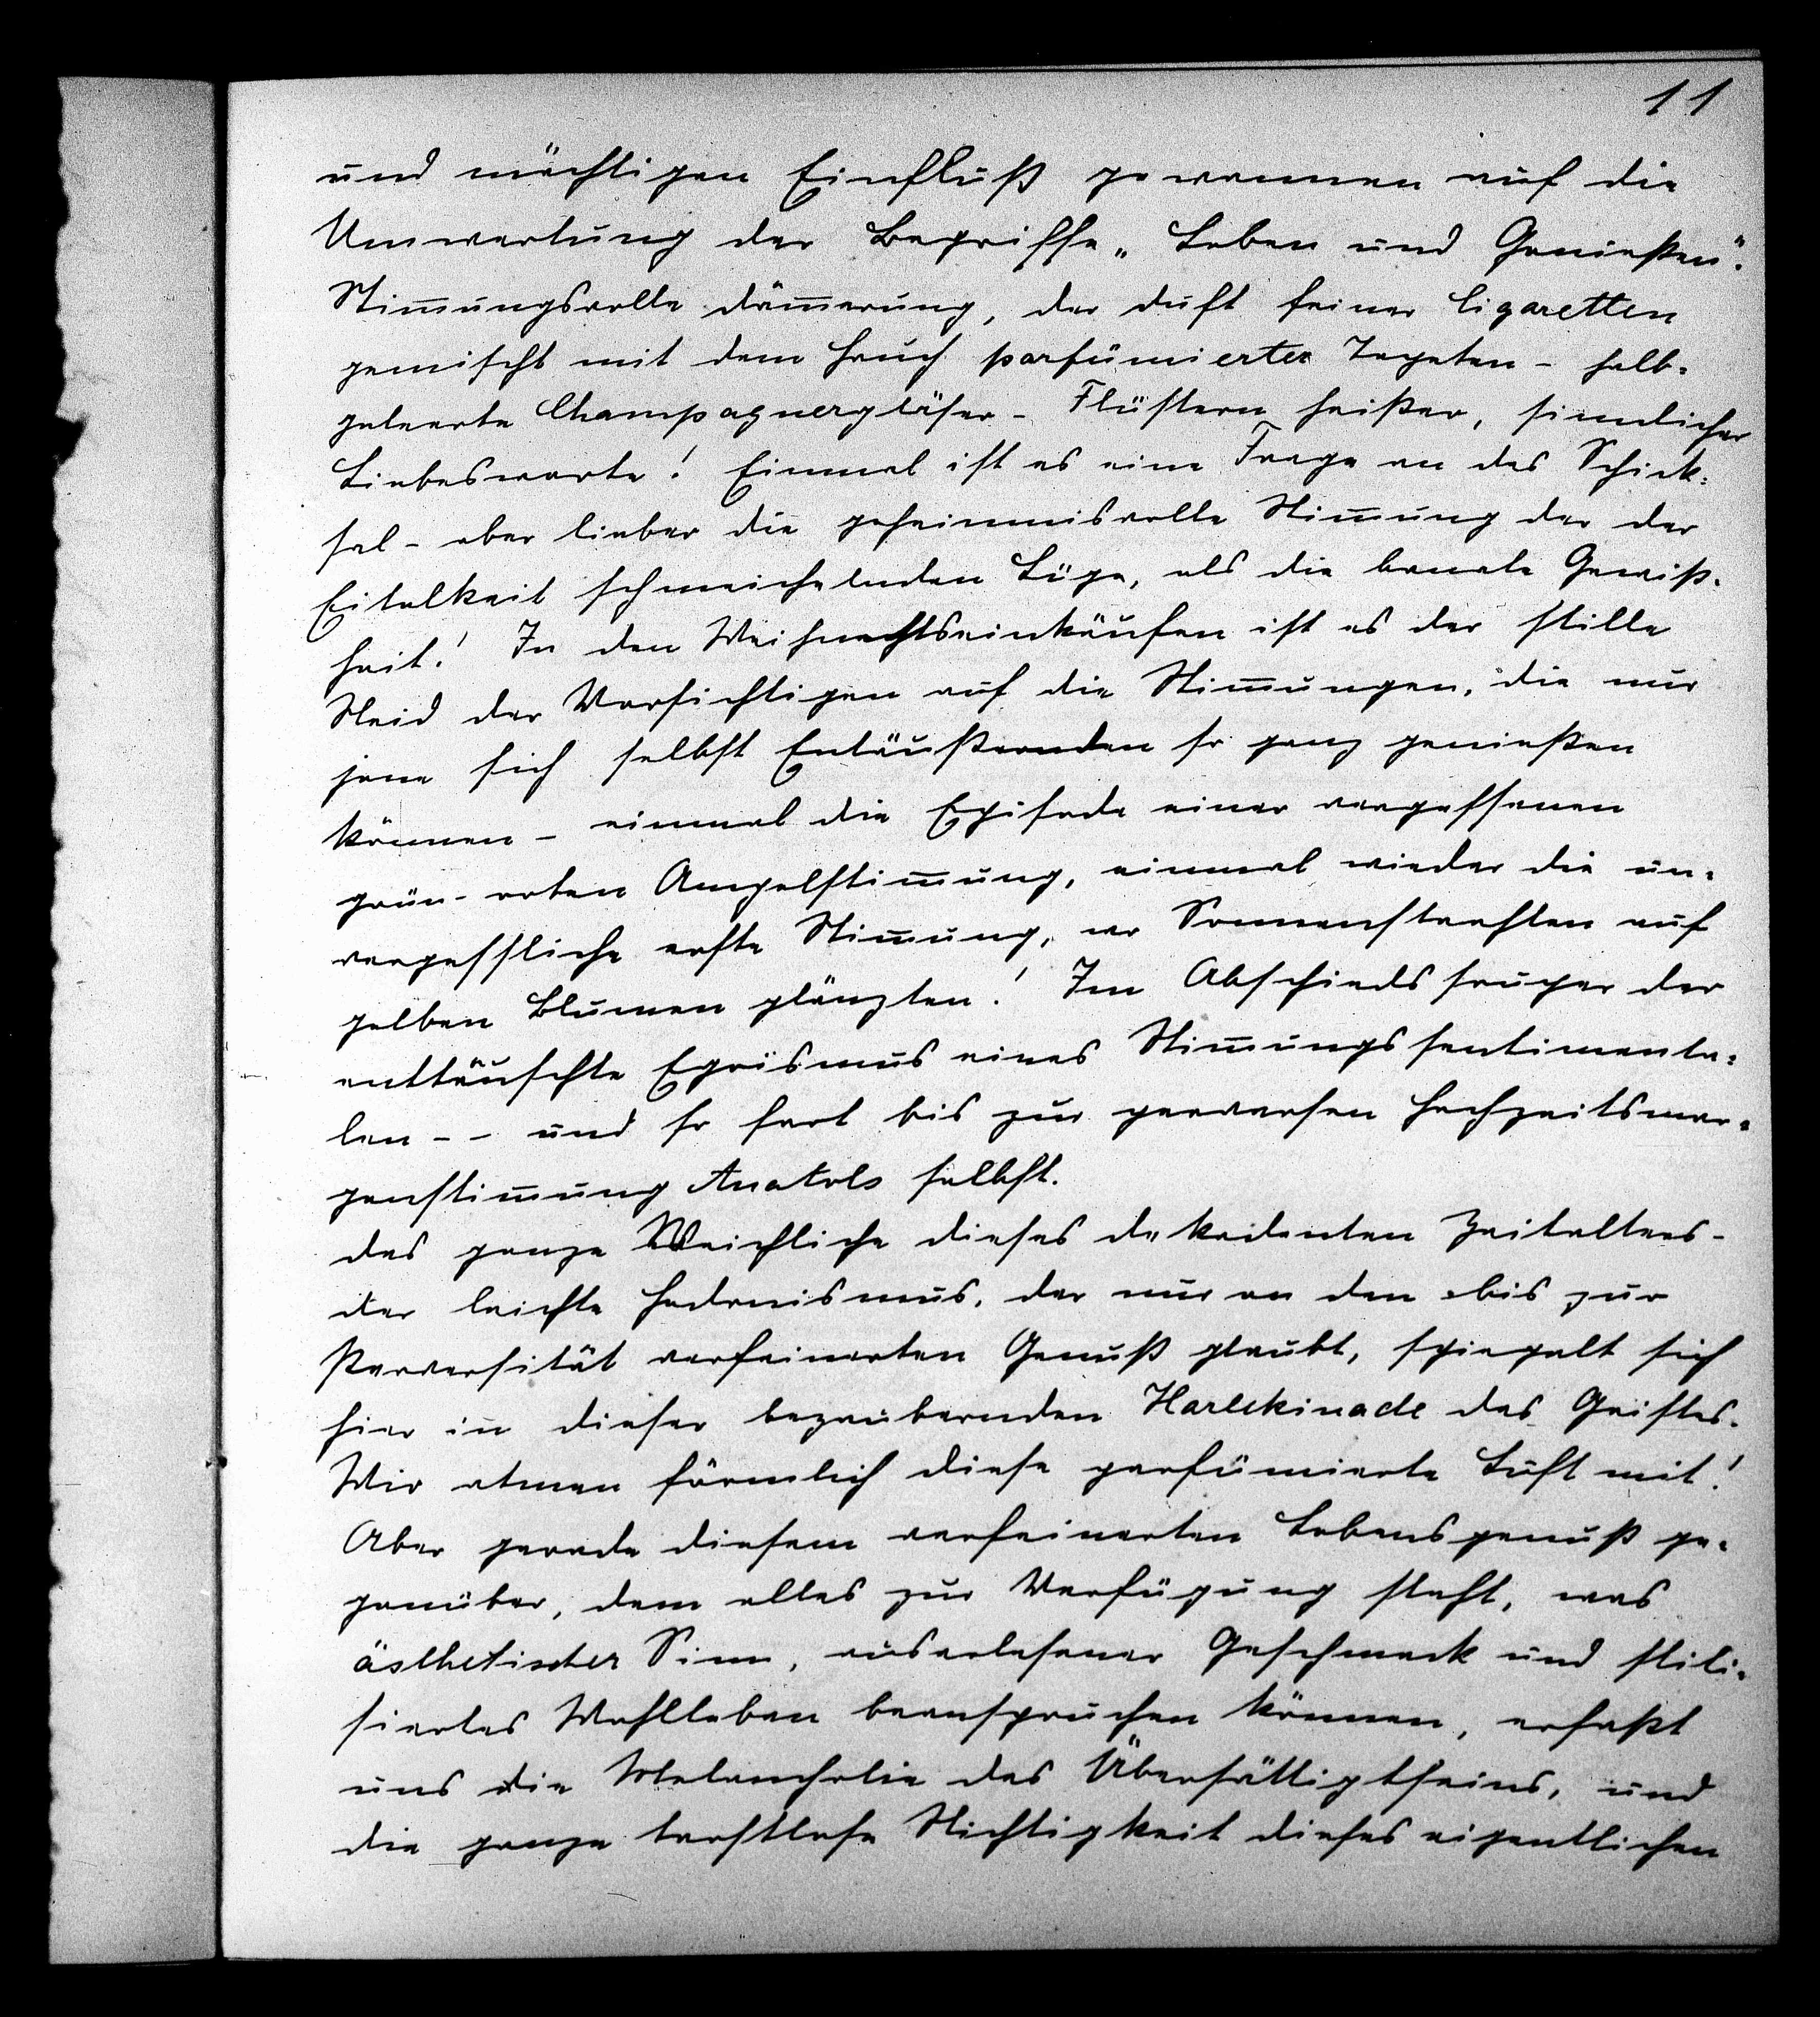 11
und mächtigen Einfluß gewannen auf die
Umwertung der Begriffe „Leben und Genießen".
Stim̅ungsvolle Däm̅erung, der Duft feiner Cigaretten
gemischt mit dem Hauch parfümierter Tapeten - halb-
geleerte Champagnergläser - Flüstern heißer, sinnlicher
Liebesworte! Einmal ist es eine Frage an das Schick-
sal - aber lieber die geheimnisvolle Stim̅ung der der
Eitelkeit schmeichelnden Lüge, als die banale Gewiß-
heit! In den Weihnachtseinkäufen ist es der stille
Neid der Vorsichtigen auf die Stim̅ungen, die nur
jene sich selbst Entäußernden so ganz genießen
können - einmal die Episode einer vergessenen
grün-roten Ampelstim̅ung, einmal wieder die un-
vergessliche erste Stim̅ung, wo Sonnenstrahlen auf
gelben Blumen glänzten! Im Abschiedssouper der
enttäuschte Egoismus eines Stim̅ungssentimenta-
len - - und so fort bis zur perversen Hochzeitsmor-
genstim̅ung Anatols selbst.
Das ganze Weichliche dieses dekadenten Zeitalters -
der leichte Hedonismus, der nur an den bis zur
Perversität verfeinerten Genuß glaubt, spiegelt sich
hier in dieser bezaubernden Harlekinade des Geistes.
Wir atmen förmlich diese parfümierte Luft mit!
Aber gerade diesem verfeinerten Lebensgenuß ge-
genüber, dem alles zur Verfügung steht, was
ästhetischer Sinn, auserlesener Geschmack und stili-
siertes Wohlleben beanspruchen können, erfaßt
uns die Melancholie des Übersättigtseins, und
die ganze trostlose Nichtigkeit dieses eigentlichen